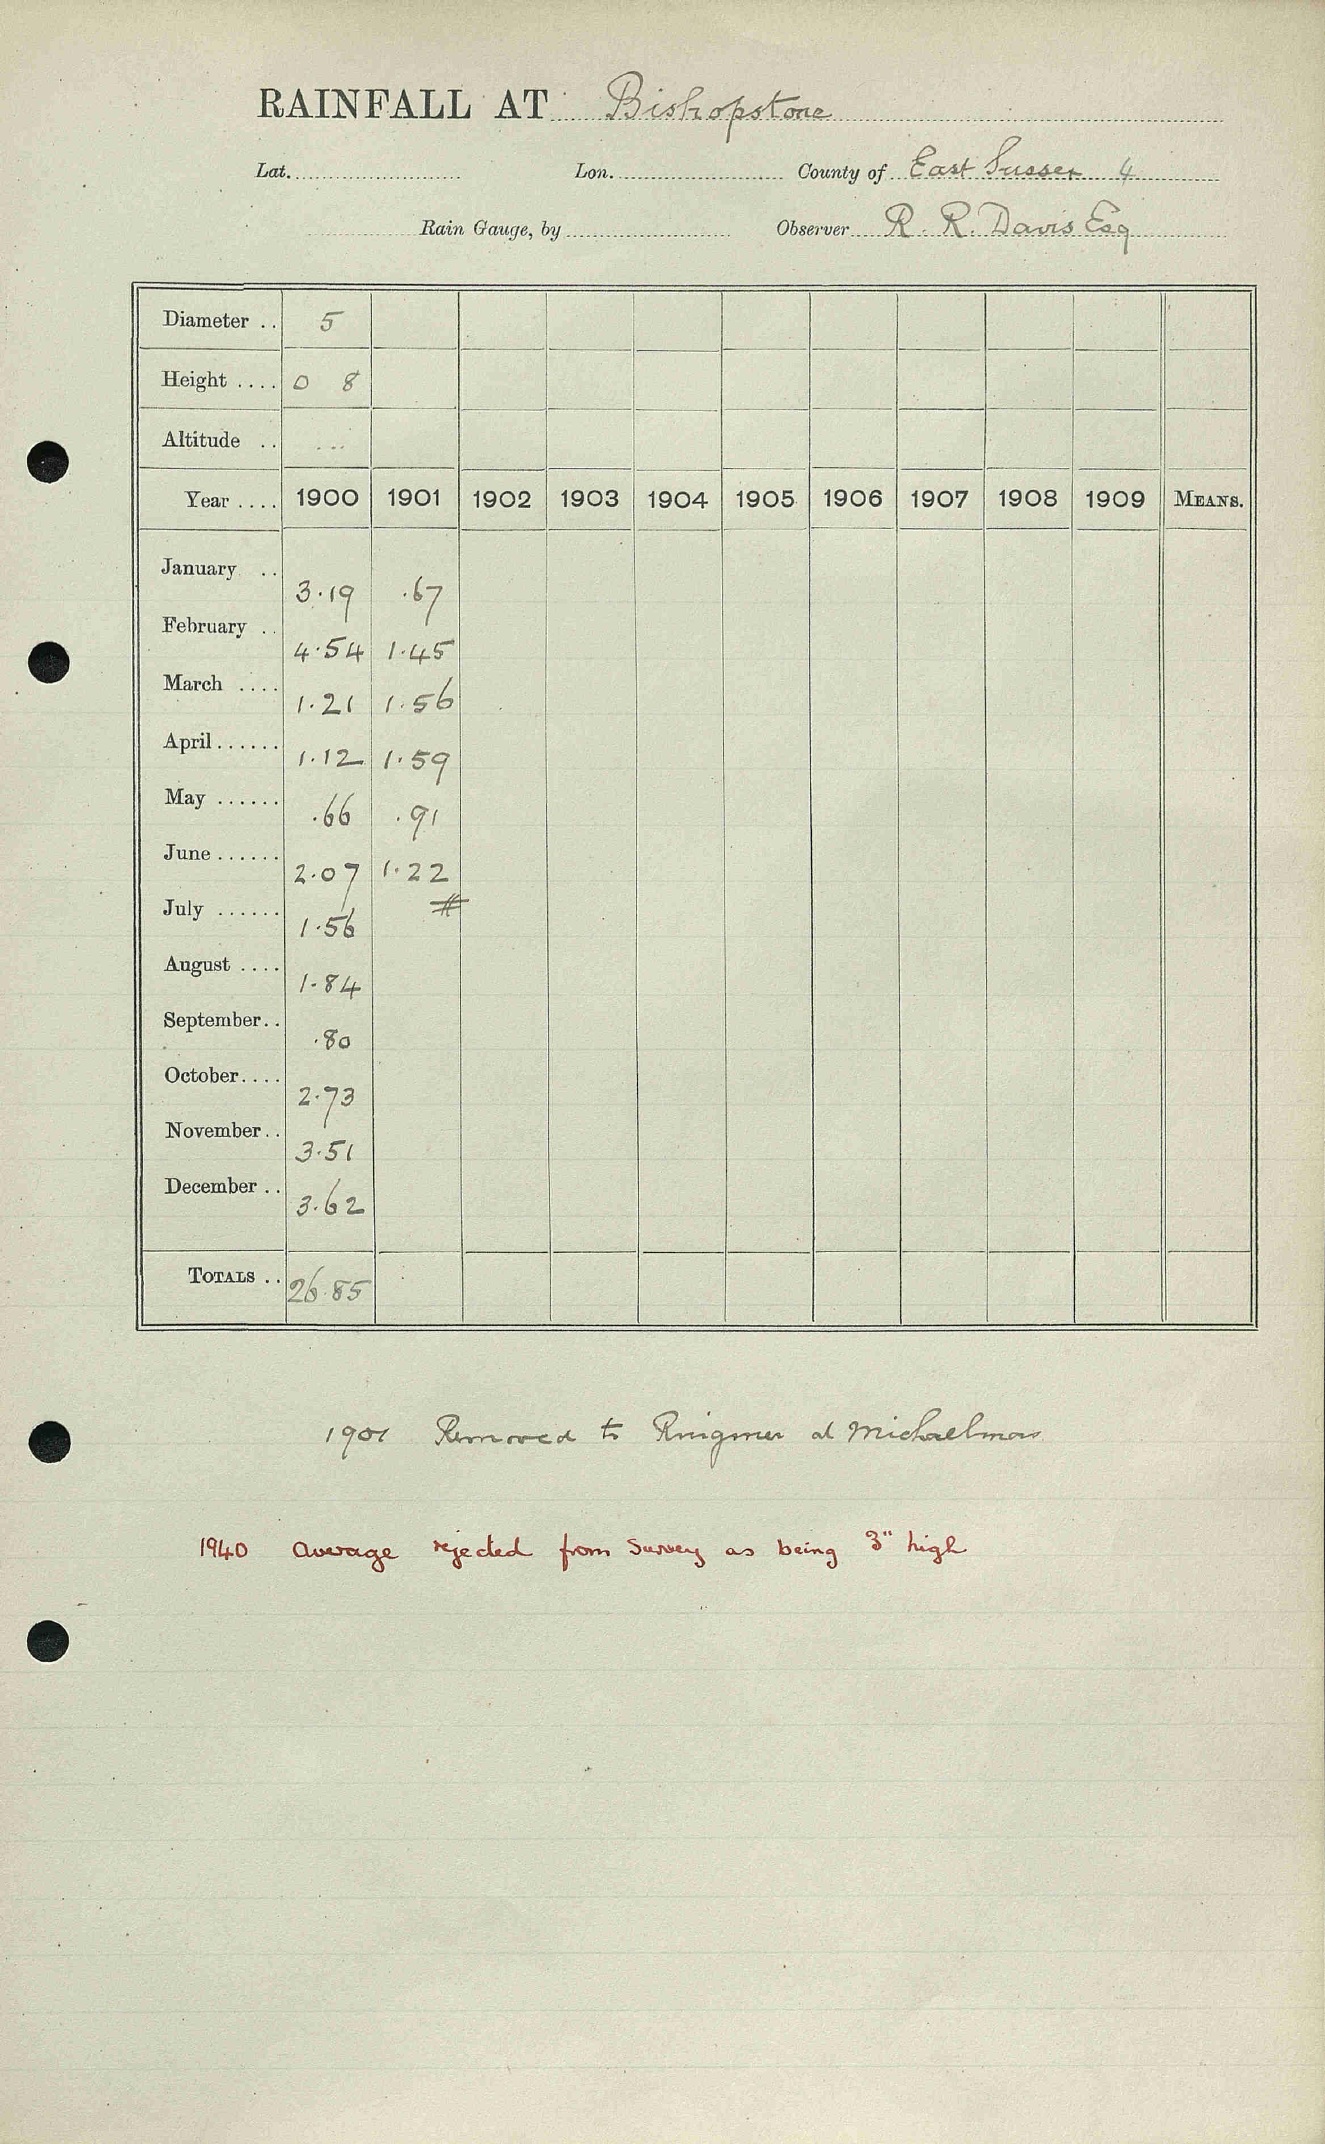 RAINFALL AT Bishopstone
Lat. Lon. County of East Sussex 4
Rain Gauge, by Observer R. R. Davis Esq
Diameter .. 5
Height .... 0 8
Altitude .. ...
Year .... 1900 1901 1902 1903 1904 1905 1906 1907 1908 1909 MEANS.
January .. 3.19 .67
February .. 4.54 1.45
March .... 1.21 1.56
April ...... 1.12 1.59
May ...... .66 .91
June ...... 2.07 1.22
July ...... 1.56 #
August .... 1.84
September .. .80
October .... 2.73
November .. 3.51
December .. 3.62
TOTALS .. 26.85
1901 Removed to Ringmer at Michaelmas
1940 Average rejected from Survey as being 3" high